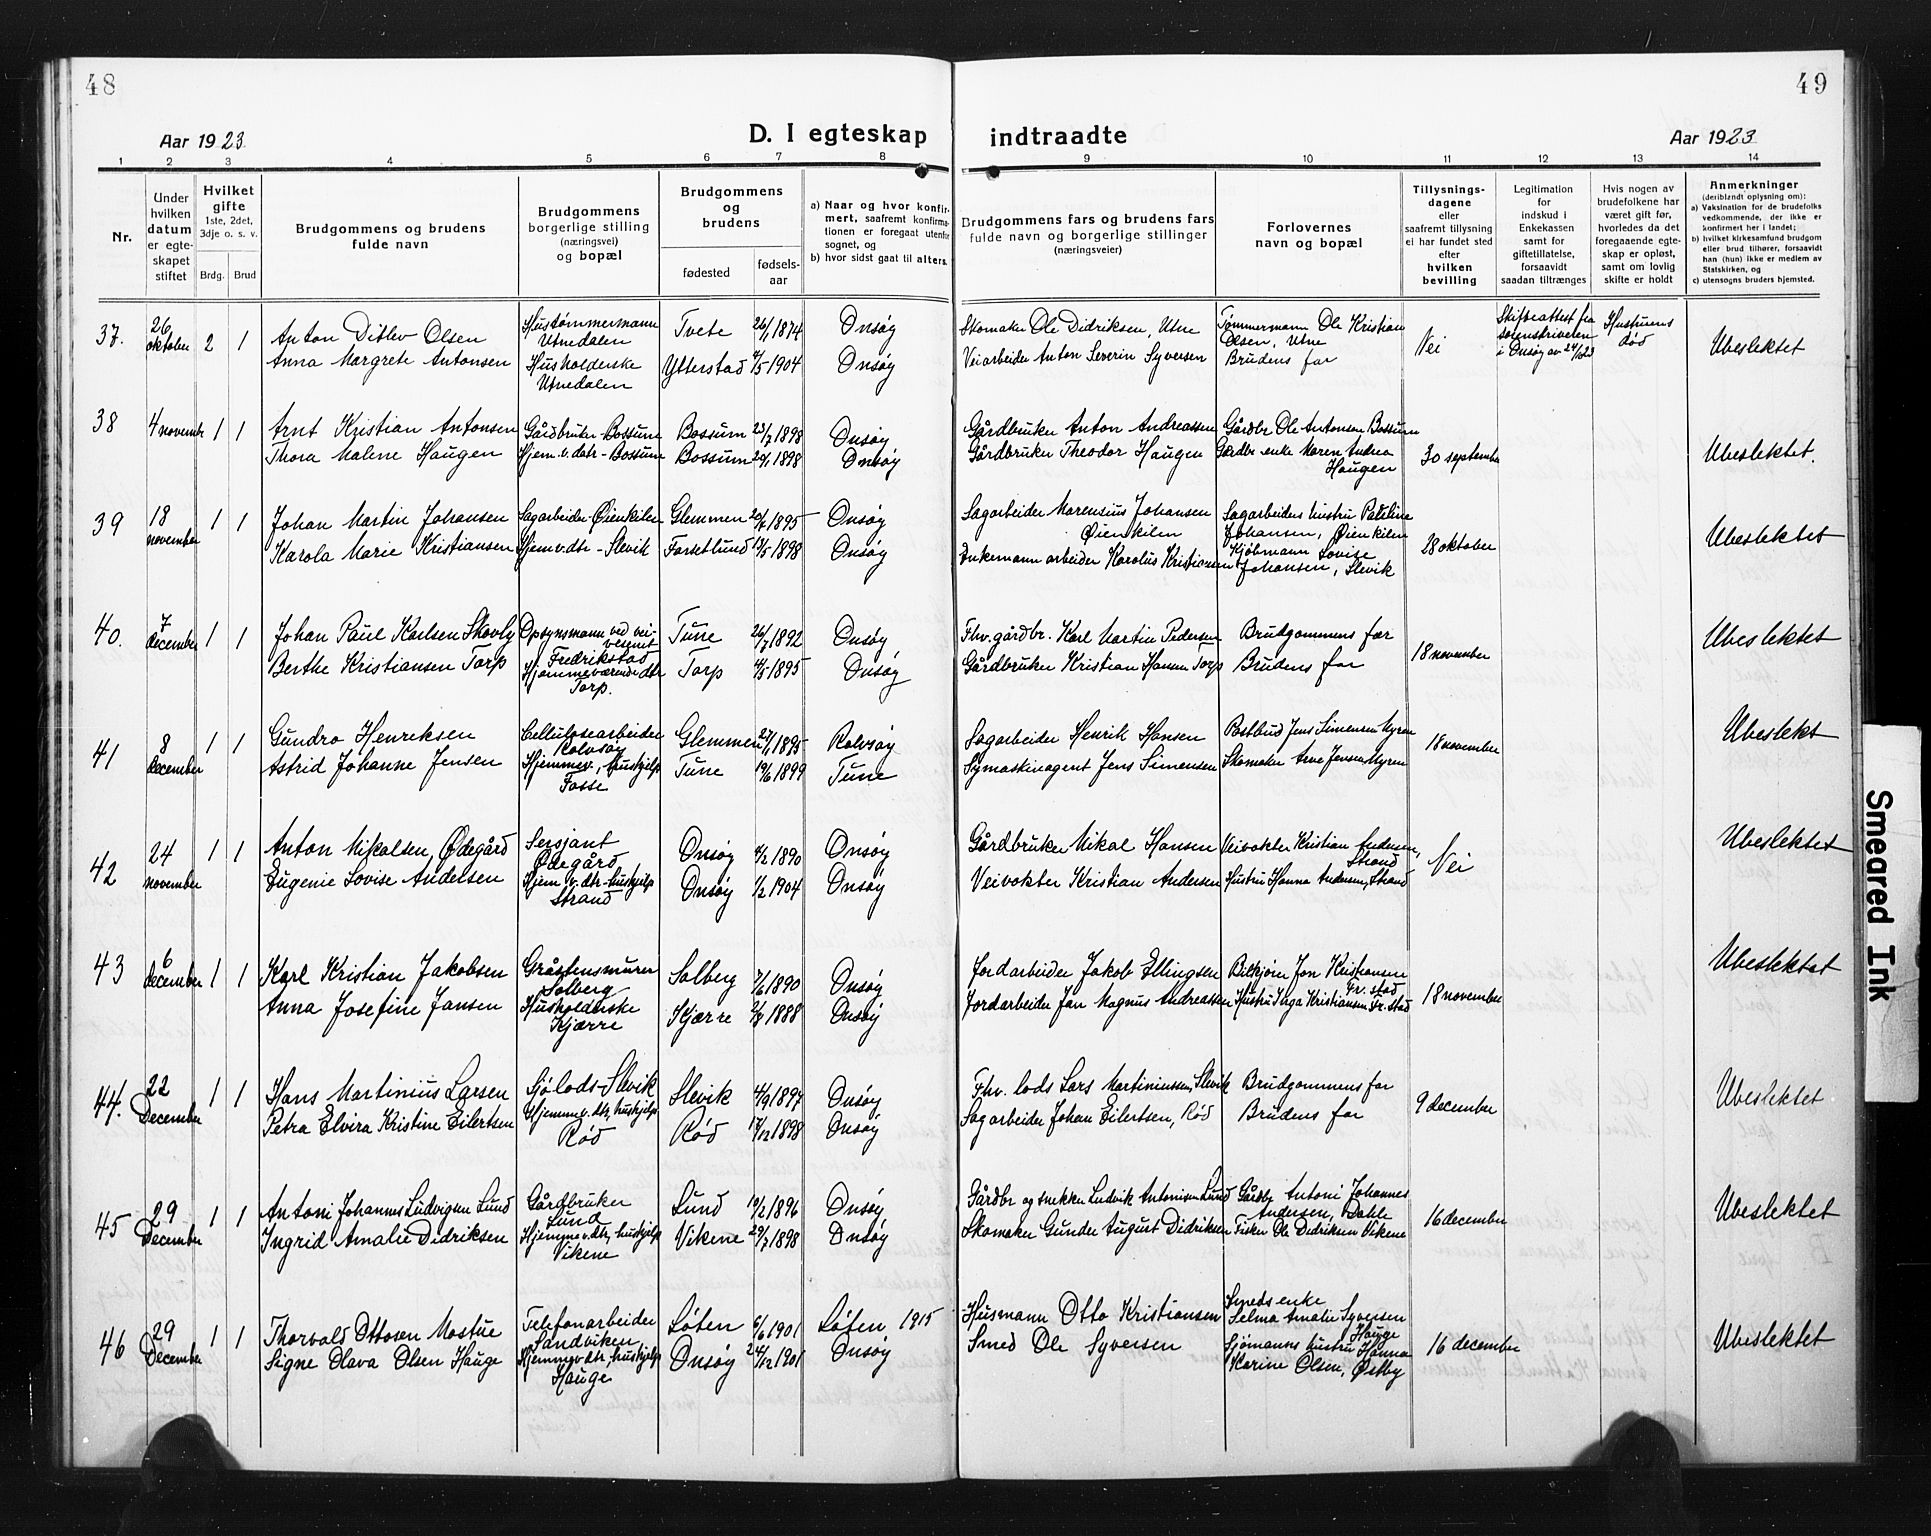 48
49
Aar 1923.
D. I egteskap indtraadte
Aar 1923
1 2 3 4 5 6 7 8 9 10 11 12 13 14
Nr.
Under hvilken datum er egteskapet stiftet
Hvilket gifte 1ste, 2det, 3dje o. s. v.
Brdg. Brud
Brudgommens og brudens fulde navn
Brudgommens borgerlige stilling (næringsvei) og bopæl
Brudgommens og brudens
fødested
fødselsaar
a) Naar og hvor konfirmert, saafremt konfirmationen er foregaat utenfor sognet, og
b) hvor sidst gaat til alters.
Brudgommens fars og brudens fars fulde navn og borgerlige stillinger (næringsveier)
Forlovernes navn og bopæl
Tillysningsdagene eller saafremt tillysning ei har fundet sted efter hvilken bevilling
Legitimation for indskud i Enkekassen samt for giftetillatelse, forsaavidt saadan tiltrænges
Hvis nogen av brudefolkene har været gift før, hvorledes da det foregaaende egteskap er opløst, samt om lovlig skifte er holdt
Anmerkninger (deriblandt oplysning om):
a) Vaksination for de brudefolks vedkommende, der ikke er konfirmert her i landet;
b) hvilket kirkesamfund brudgom eller brud tilhører, forsaavidt han (hun) ikke er medlem av Statskirken, og
c) utensogns bruders hjemsted.
37. 26 oktober 2 1 Anton Ditlev Olsen Hustømmermann Utnedalen Tvete 26/1 1874 Onsøy Skomaker Ole Didriksen, Utne Tømmermann Ole Kristian Olsen, Utne Nei Skifteattest fra sorenskriveren i Onsøy av 24/1023 Hustruens død Ubeslektet
Anna Margrete Antonsen Husholderske Utnedalen Ytterstad 4/5 1904 Onsøy Veiarbeider Anton Severin Syversen Brudens far
38 4 novembr 1 1 Arnt Kristian Antonsen Gårdbruker Bossum Bossum 23/7 1898 Onsøy Gårdbruker Anton Andreassen Gårdbr Ole Antonsen Bossum 30 september Ubeslektet.
Thora Malene Haugen Hjem.v.dtr - Bossum Bossum 1898 Onsøy Gårdbruker Theodor Haugen Gardbr enke Maren Andrea Haugen
39 18 november 1 1 Johan Martin Johansen Sagarbeider Øienkilen Glemmen 1895 Onsøy Sagarbeider Marensius Johansen Øienkilen Sagarbeiders hustru Pauline Johansen, Øienkilen 28 oktober Ubeslektet
Karola Marie Kristiansen Hjemv.dtr - Slevik Forsetlund 13/5 1898 Onsøy Enkemann arbeider Karolus Kristiansen Kjøbmann Lovise Johansen, Slevik
40. 7 december 1 1 Johan Paul Karlsen Skovly Opsynsmann ved veivesenet Fredrikstad Tune 26/7 1892 Onsøy Fhv. gårdbr. Karl Martin Pedersen Brudgommens far 18 november Ubeslektet
Berthe Kristiansen Torp Hjemmeværende dtr Torp. Torp 4/3 1895 Onsøy Gårdbruker Kristian Hansen Torp Brudens far
41 8 december 1 1 Gundro Henriksen Cellulosearbeider Rolvsøy Glemmen 27/1 1895 Rolvsøy Sagarbeider Henrik Hansen Postbud Jens Simensen Myren 18 november Ubeslekt
Astrid Johanne Jensen Hjemmev., hushjelp Fosse Tune 19/6 1899 Tune Symaskinagent Jens Simensen Skomaker Arve Jensen Myren
42 24 november 1 1 Anton Mikalsen, Ødegård Sersjant Ødegård Onsøy 4/2 1890 Onsøy Gårdbruker Mikal Hansen Veivokter Kristian Andersen, Strand Nei Ubeslektet
Eugenie Lovise Andersen Hjem v. dtr - hushjelp Strand Onsøy 1/2 1904 Onsøy Veivokter Kristian Andersen Hustru Hanna Andersen, Strand
43 6 december 1 1 Karl Kristian Jakobsen Gråstensmurer Solberg Solberg 7/6 1890 Onsøy Jordarbeider Jakob Ellingsen Bilkjører Jon Kristiansen Fr. stad 18 november Ubeslektet
Anna Josefine Jansen Husholderske Kjærre Kjærre 2/8 1888 Onsøy Jordarbeider Jan Magnus Andreassen Hustru Inga Kristiansen Fr. stad
44. 22 December 1 1 Hans Martinius Larsen Sjølods - Slevik Slevik 4/9 1897 Onsøy Fhv. lods Lars Martiniussen, Slevik Brudgommens far 9 december Ubeslektet
Petra Elvira Kristine Eilertsen Hjemmev. dtr, hushjelp Rød Rød 17/12 1898 Onsøy Sagarbeider Johan Eilertsen, Rød Brudens far
45 29 December 1 1 Antoni Johannes Ludvigsen Lund Gårdbruker Lund Lund 10/2 1896 Onsøy Gårdbr og snekker Ludvik Antonisen Lund Gårdbr Antoni Johannes Andersen, Dahle 16 december Ubeslektet
Ingrid Amalie Didriksen Hjemmev dtr, hushjelp Vikene Vikene 29/7 1898 Onsøy Skomaker Gunder August Didriksen Fisker Ole Didriksen Vikene
46 29 December 1 1 Thorvald Ottosen Mostue Telefonarbeider Sandviken Løten 6/6 1901 Løten 1915 Husmann Otto Kristiansen Smeds enke Selma Amalie Syversen Hauge 16 december Ubeslektet
Signe Olava Olsen Hauge Hjemmev dtr, hushjelp Hauge Onsøy 24/12 1901 Onsøy Smed Ole Syversen Sjømanns hustru Hanna Karine Olsen, Østby
Smeared Ink